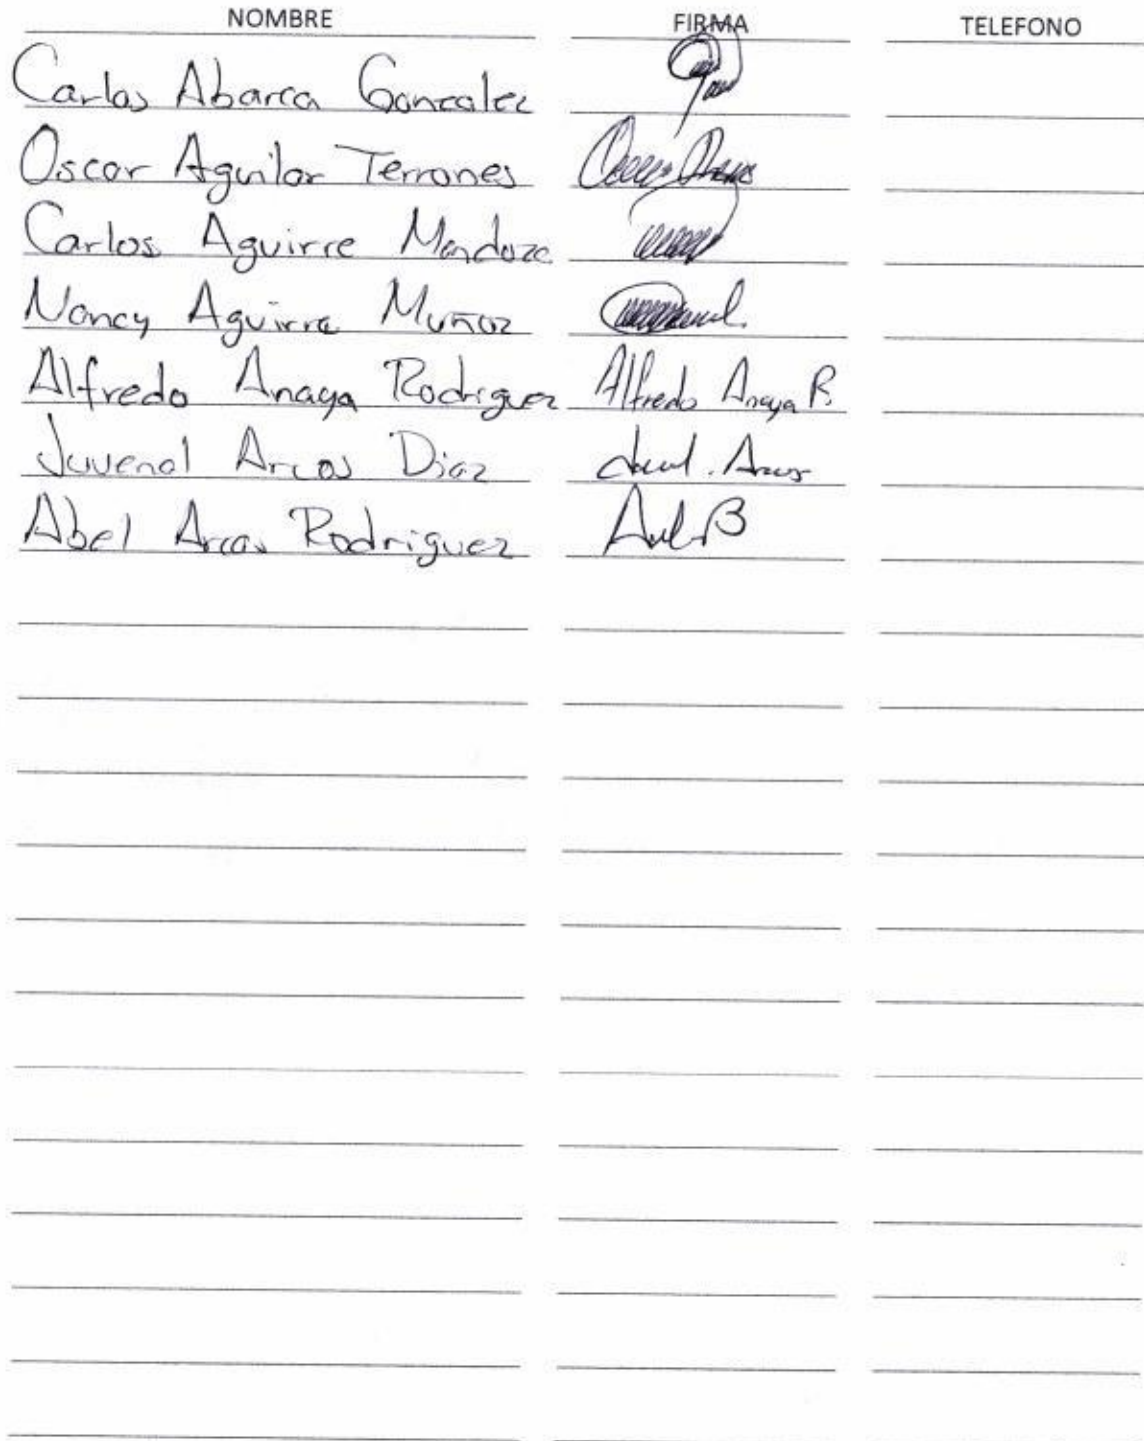 NOMBRE FIRMA TELEFONO
Carlos Abarca Gonzalez
Oscar Aguilar Terrones
Carlos Aguirre Mendoza
Nancy Aguirre Muñoz
Alfredo Anaya Rodriguez Alfredo Anaya R.
Juvenal Arcos Diaz
Abel Arcos Rodriguez